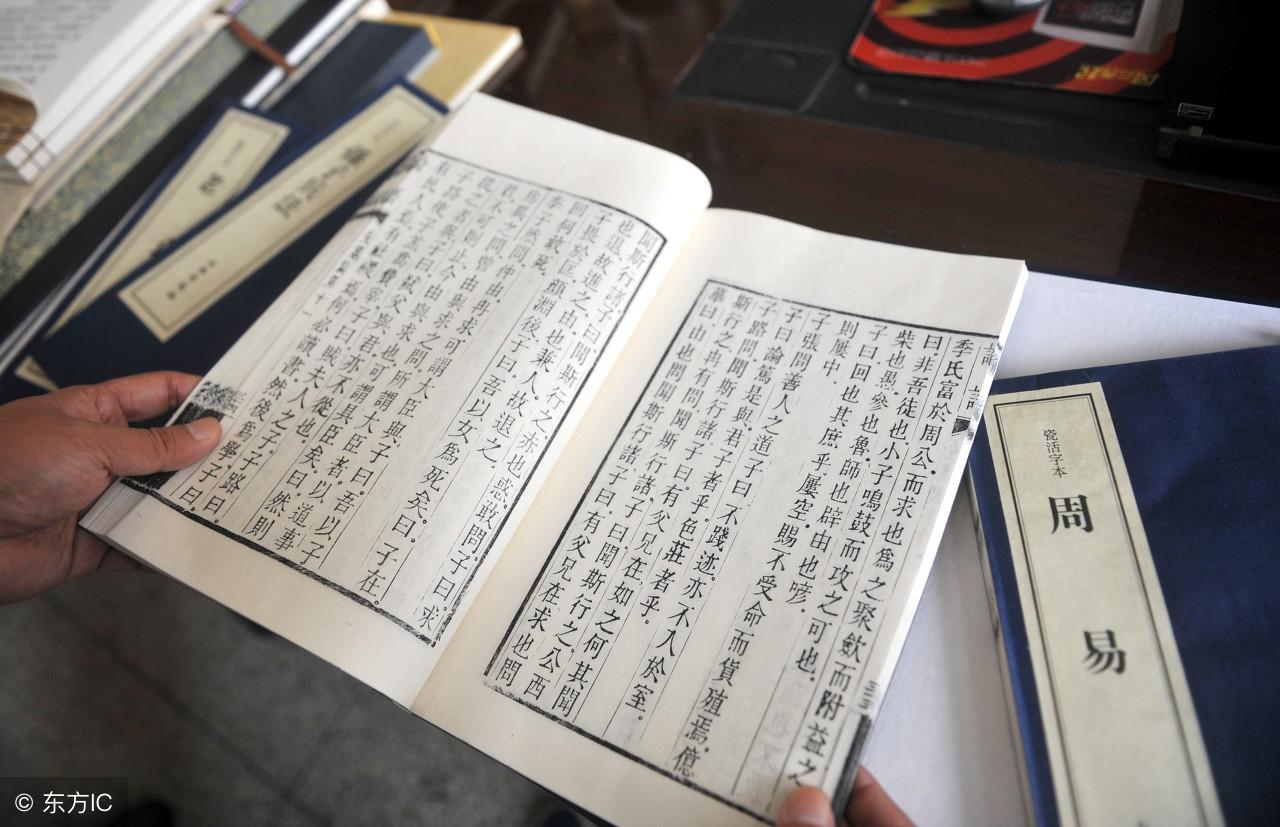 季氏富於周公。而求也爲之聚歛而附益之
曰非吾徒也小子鳴鼓而攻之可也。
柴也愚。參也魯。師也辟。由也喭。
子曰回也其庶乎屢空。賜不受命而貨殖焉億
則屢中。
子張問善人之道子曰不踐迹。亦不入於室。
子曰論篤是與君子者乎。色莊者乎。
子路問聞斯行諸。子曰。有父兄在如之何其聞
斯行之。冉有問聞斯行諸。子曰。聞斯行之。公西
華曰由也問聞斯行諸。子曰。有父兄在求也問
聞斯行諸。子曰。聞斯行之。赤也惑。敢問。子曰。求
也退故進之。由也兼人。故退之。
子畏於匡。顏淵後。子曰。吾以女爲死矣。曰。子在。
回何敢死。
季子然問。仲由冉求可謂大臣與。子曰。吾以子
爲異之問。曾由與求之問。所謂大臣者。以道事
君。不可則止。今由與求也。可謂具臣矣。曰。然則
從之者與。子曰。弑父與君。亦不從也。
子路使子羔爲費宰。子曰。賊夫人之子。子路曰。
有民人焉。有社稷焉。何必讀書。然後爲學。子曰。
瓷活字本
周易
© 东方IC